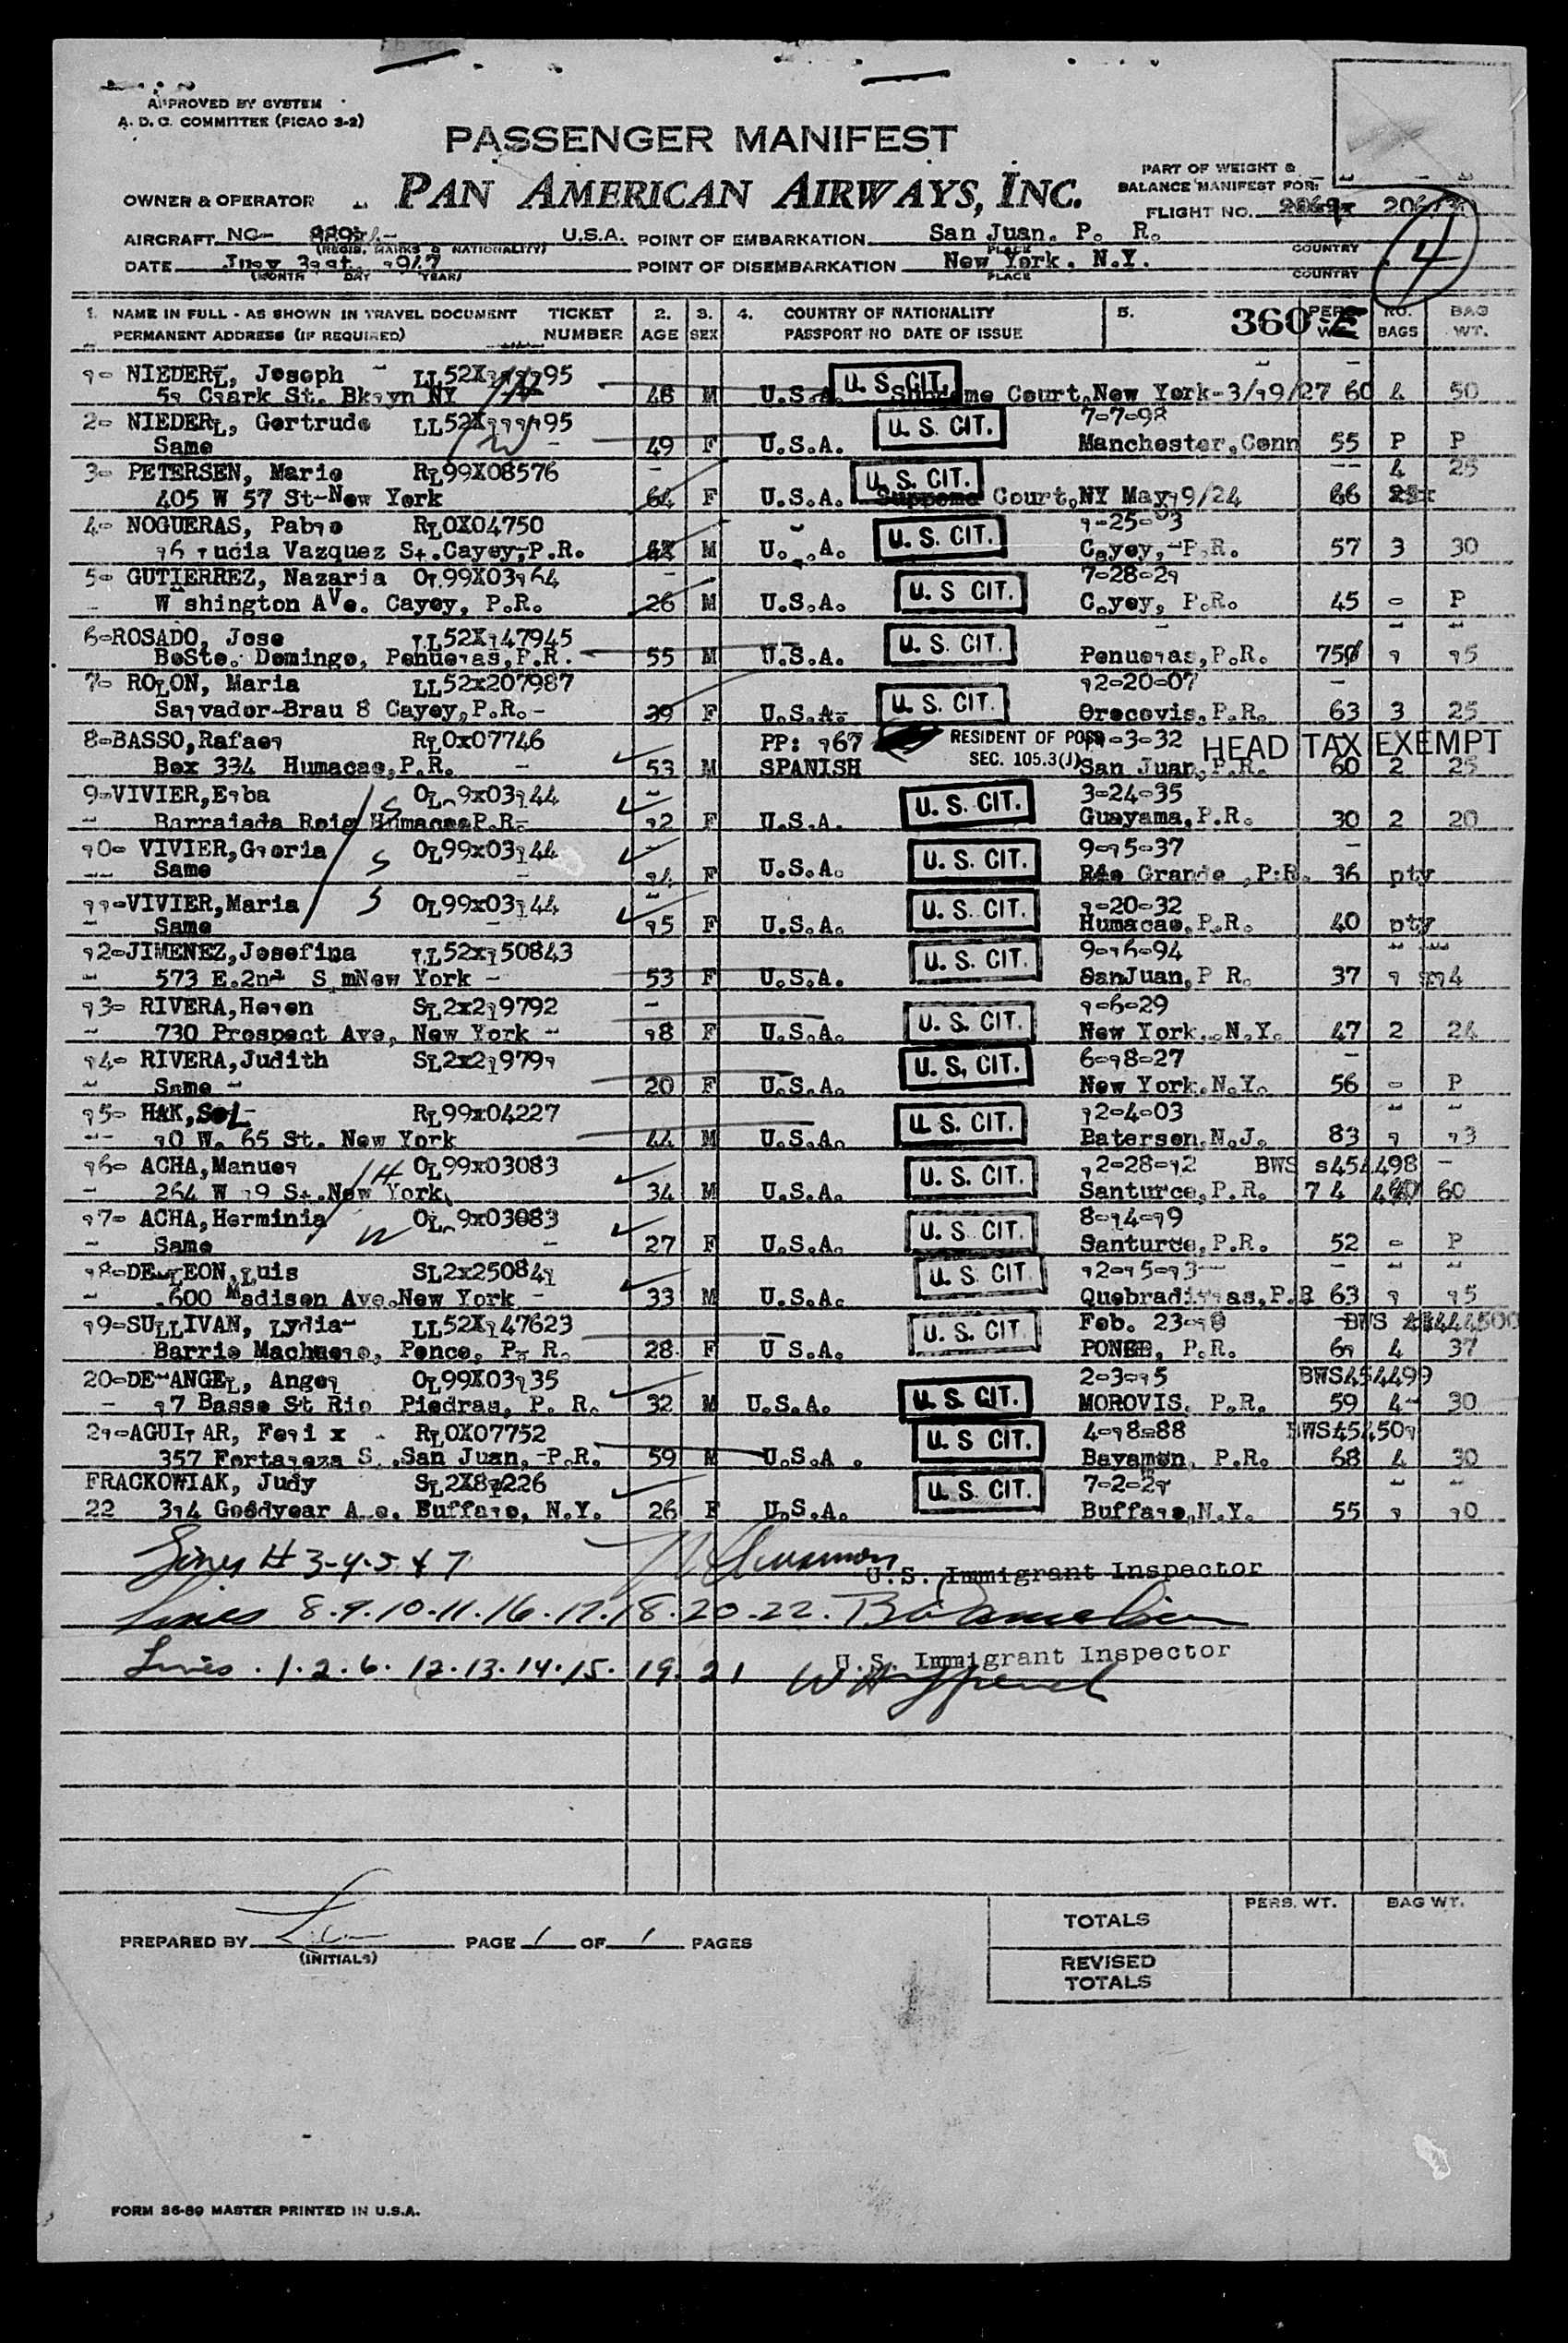 APPROVED BY SYSTEM
A. D. C. COMMITTEE (PICAO 3-2)
PASSENGER MANIFEST
PART OF WEIGHT &
BALANCE MANIFEST FOR:
OWNER & OPERATOR PAN AMERICAN AIRWAYS, INC.
FLIGHT NO.
4
AIRCRAFT NC- U.S.A. POINT OF EMBARKATION San Juan. P. R.
(REGIS. MARKS & NATIONALITY) PLACE COUNTRY
DATE 1947 POINT OF DISEMBARKATION New York. N.Y.
(MONTH DAY YEAR) PLACE COUNTRY
1. NAME IN FULL - AS SHOWN IN TRAVEL DOCUMENT TICKET 2. 3. 4. COUNTRY OF NATIONALITY 5. 360 PERS. NO. BAG
PERMANENT ADDRESS (IF REQUIRED) NUMBER AGE SEX PASSPORT NO DATE OF ISSUE WT. BAGS WT.
1- NIEDERL, Joseph
51 Clark St. Bklyn NY 48 M U.S.A. U. S. CIT. Supreme Court, New York-3/19/27 60 4 50
2- NIEDERL, Gertrude 7-7-98
Same 49 F U.S.A. U. S. CIT. Manchester, Conn 55 P P
3- PETERSEN, Marie RL99X08576 4 25
405 W 57 St-New York 64 F U.S.A. U. S. CIT. Supreme Court, NY May 19/24 66
4- NOGUERAS, Pablo RL0X04750
Lucia Vazquez St. Cayey, P.R. M U.S.A. U. S. CIT. Cayey, P.R. 57 3 30
5- GUTIERREZ, Nazaria OL99X03164 7-28-21
Washington Ave. Cayey, P.R. 26 M U.S.A. U. S CIT. Cayey, P.R. 45 - P
6-ROSADO, Jose LL52X147945
BoSto. Domingo, Penuelas, P.R. 55 M U.S.A. U. S. CIT. Penuelas, P.R. 75 1 15
7- ROLON, Maria LL52x207987 12-20-07
Salvador-Brau 8 Cayey, P.R. 39 F U.S.A. U. S. CIT. Orocovis, P.R. 63 3 25
8-BASSO, Rafael RL0x07746 PP: 167 RESIDENT OF POSS 11-3-32 HEAD TAX EXEMPT
Box 334 Humacao, P.R. 53 M SPANISH SEC. 105.3(J) San Juan, P.R. 60 2 25
9-VIVIER, Elba S OL99x03144 3-24-35
Barraiada Roig Humacao P.R. 12 F U.S.A. U. S. CIT. Guayama, P.R. 30 2 20
10- VIVIER, Gloria S OL99x03144 9-15-37
Same 14 F U.S.A. U. S. CIT. Rio Grande, P.R. 36 pty
11-VIVIER, Maria S OL99x03144 1-20-32
Same 15 F U.S.A. U. S. CIT. Humacao, P.R. 40 pty
12-JIMENEZ, Josefina LL52x150843 9-16-94
573 E.2nd New York 53 F U.S.A. U. S. CIT. SanJuan, P R. 37 1 14
13- RIVERA, Helen SL2x219792 1-6-29
730 Prospect Ave, New York 18 F U.S.A. U. S. CIT. New York, N.Y. 47 2 24
14- RIVERA, Judith SL2x219791 6-18-27
Same 20 F U.S.A. U. S, CIT. New York, N.Y. 56 - P
15- HAK, Sol RL99x04227 12-4-03
10 W. 65 St. New York 44 M U.S.A. U. S. CIT. Paterson, N.J. 83 1 13
16- ACHA, Manuel H OL99x03083 12-28-12 BWS 454498
264 W 19 St. New York 34 M U.S.A. U. S. CIT. Santurce, P.R. 74 60
17- ACHA, Herminia W OL99x03083 8-14-19
Same 27 F U.S.A. U. S. CIT. Santurce, P.R. 52 - P
18-DE LEON, Luis SL2x250841 12-15-13
1600 Madison Ave. New York 33 M U.S.A. U. S. CIT Quebradillas, P.R 63 1 15
19-SULLIVAN, Lydia LL52X147623 Feb. 23-19 BWS
Barrio Machuelo, Ponce, P. R. 28 F U S.A. U. S. CIT PONCE, P.R. 61 4 37
20-DE ANGEL, Angel OL99X03135 2-3-15 BWS454499
17 Basse St Rio Piedras, P. R. 32 M U.S.A. U. S. CIT. MOROVIS, P.R. 59 4 30
21-AGUILAR, Felix RL0X07752 4-18-88 BWS454501
357 Fortaleza S. San Juan, P.R. 59 M U.S.A. U. S CIT. Bayamon, P.R. 68 4 30
FRACKOWIAK, Judy 7-2-21
22 314 Goodyear Ave. Buffalo, N.Y. 26 F U.S.A. U. S. CIT. Buffalo, N.Y. 55 1 10
Lines # 3-4-5 & 7
U.S. Immigrant Inspector
Lines 8.9.10.11.16.17.18.20-22.
U.S. Immigrant Inspector
Lines . 1.2.6. 12.13.14.15. 19.21
TOTALS PERS. WT. BAG WT.
PREPARED BY PAGE 1 OF 1 PAGES
(INITIALS)
REVISED
TOTALS
FORM 36-89 MASTER PRINTED IN U.S.A.